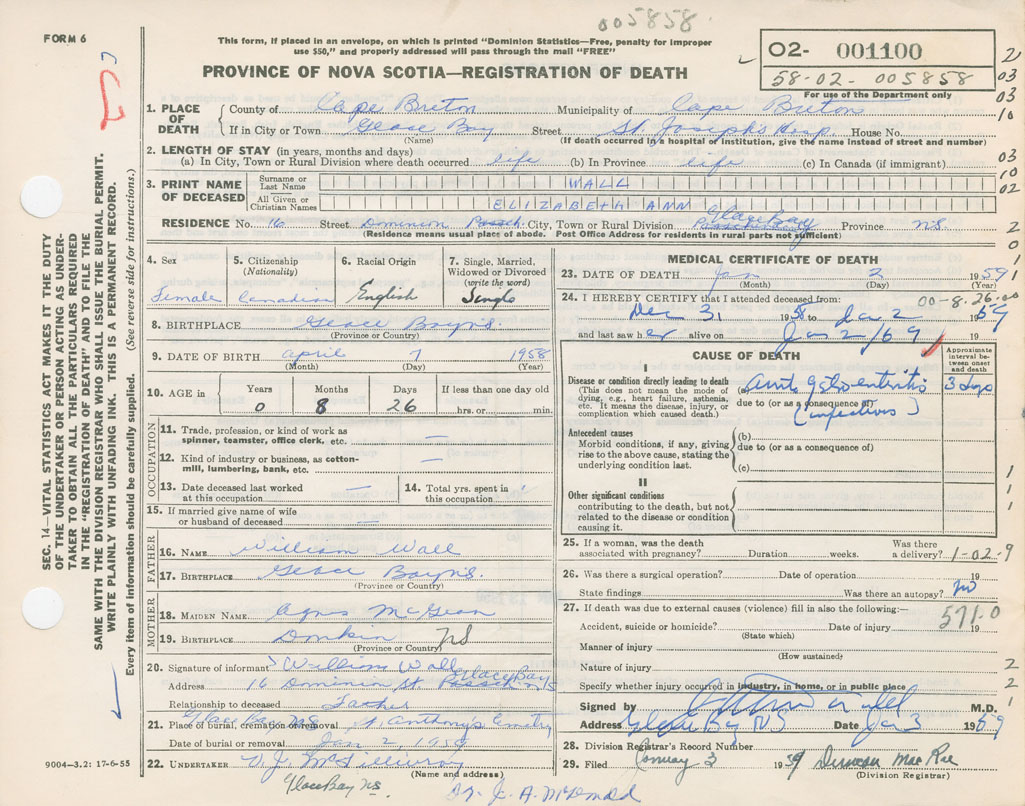 005858
FORM 6
This form, if placed in an envelope, on which is printed "Dominion Statistics—Free, penalty for improper
use $50," and properly addressed will pass through the mail "FREE"
PROVINCE OF NOVA SCOTIA—REGISTRATION OF DEATH
O2- 001100
58-02-005858
For use of the Department only
1. PLACE OF DEATH County of Cape Breton Municipality of Cape Breton
If in City or Town Glace Bay Street St. Joseph's Hosp. House No.
(Name) (If death occurred in a hospital or institution, give the name instead of street and number)
2. LENGTH OF STAY (in years, months and days)
(a) In City, Town or Rural Division where death occurred life (b) In Province life (c) In Canada (if immigrant)
3. PRINT NAME OF DECEASED
Surname or Last Name WALL
All Given or Christian Names ELIZABETH ANN
Glace Bay
RESIDENCE No. 16 Street Dominion City, Town or Rural Division Province N.S.
(Residence means usual place of abode. Post Office Address for residents in rural parts not sufficient)
4. Sex Female
5. Citizenship (Nationality) Canadian
6. Racial Origin English
7. Single, Married, Widowed or Divorced (write the word) Single
8. BIRTHPLACE Glace Bay N.S.
(Province or Country)
9. DATE OF BIRTH April 7 1958
(Month) (Day) (Year)
10. AGE in Years Months Days If less than one day old
0 8 26 hrs. or min.
OCCUPATION
11. Trade, profession, or kind of work as spinner, teamster, office clerk, etc. —
12. Kind of industry or business, as cotton-mill, lumbering, bank, etc. —
13. Date deceased last worked at this occupation —
14. Total yrs. spent in this occupation
15. If married give name of wife or husband of deceased —
FATHER
16. NAME William Wall
17. BIRTHPLACE Glace Bay N.S.
(Province or Country)
MOTHER
18. MAIDEN NAME Agnes McGean
19. BIRTHPLACE Donkin NS
(Province or Country)
20. Signature of informant William Wall
Address 16 Dominion St. Passch Glace Bay N.S
Relationship to deceased Father
21. Place of burial, cremation or removal Glace Bay N.S. St. Anthony's Cemetry
Date of burial or removal Jan 2, 1959
22. UNDERTAKER D.J. McGillivray
(Name and address)
Glace Bay N.S.
9004—3.2: 17-6-55
MEDICAL CERTIFICATE OF DEATH
23. DATE OF DEATH Jan 2 1959
(Month) (Day) (Year)
24. I HEREBY CERTIFY that I attended deceased from: 00-8-26-00
Dec 31 1958 to Jan 2 1959
and last saw her alive on Jan 2/59
CAUSE OF DEATH
Approximate interval between onset and death
I
Disease or condition directly leading to death
(This does not mean the mode of dying, e.g., heart failure, asthenia, etc. It means the disease, injury, or complication which caused death.)
(a) Acute gastroenteritis 3 days
due to (or as a consequence of)
(infectious)
Antecedent causes
Morbid conditions, if any, giving rise to the above cause, stating the underlying condition last.
(b)
due to (or as a consequence of)
(c)
II
Other significant conditions
contributing to the death, but not related to the disease or condition causing it.
25. If a woman, was the death associated with pregnancy? Duration weeks. Was there a delivery? 1-02-9
26. Was there a surgical operation? Date of operation 19
State findings Was there an autopsy? no
27. If death was due to external causes (violence) fill in also the following:—
571.0
Accident, suicide or homicide? Date of injury 19
(State which)
Manner of injury
(How sustained)
Nature of injury
Specify whether injury occurred in industry, in home, or in public place
Signed by M.D.
Address Glace Bay NS Date Jan 3 1959
28. Division Registrar's Record Number
29. Filed January 3 1959 Duncan MacRae
(Division Registrar)
Dr. J. A. McDonald
SEC. 14—VITAL STATISTICS ACT MAKES IT THE DUTY
OF THE UNDERTAKER OR PERSON ACTING AS UNDER-
TAKER TO OBTAIN ALL THE PARTICULARS REQUIRED
IN THE "REGISTRATION OF DEATH" AND TO FILE THE
SAME WITH THE DIVISION REGISTRAR WHO SHALL ISSUE THE BURIAL PERMIT.
WRITE PLAINLY WITH UNFADING INK. THIS IS A PERMANENT RECORD.
Every item of information should be carefully supplied. (See reverse side for instructions.)
2
03
03
16
03
10
02
2
0
1
1
1
1
1
2
2
1